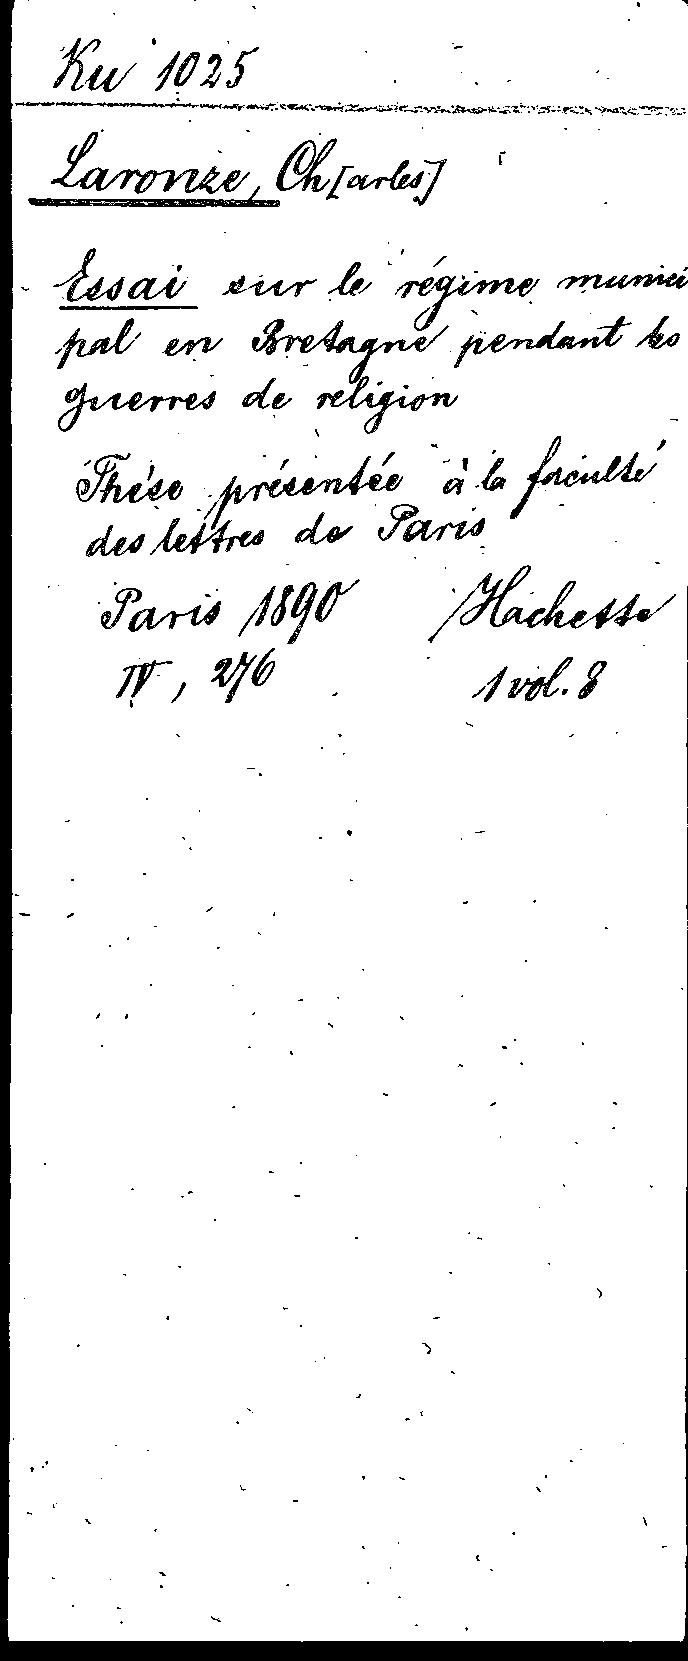 Ku 1025
Laronze, Ch[arles]
Essai sur le régime munici
pal en Bretagne pendant les
guerres de religion
Thése présentée à la faculté
des lettres de Paris
Paris 1890 Hachette
IV, 276 1 vol. 8